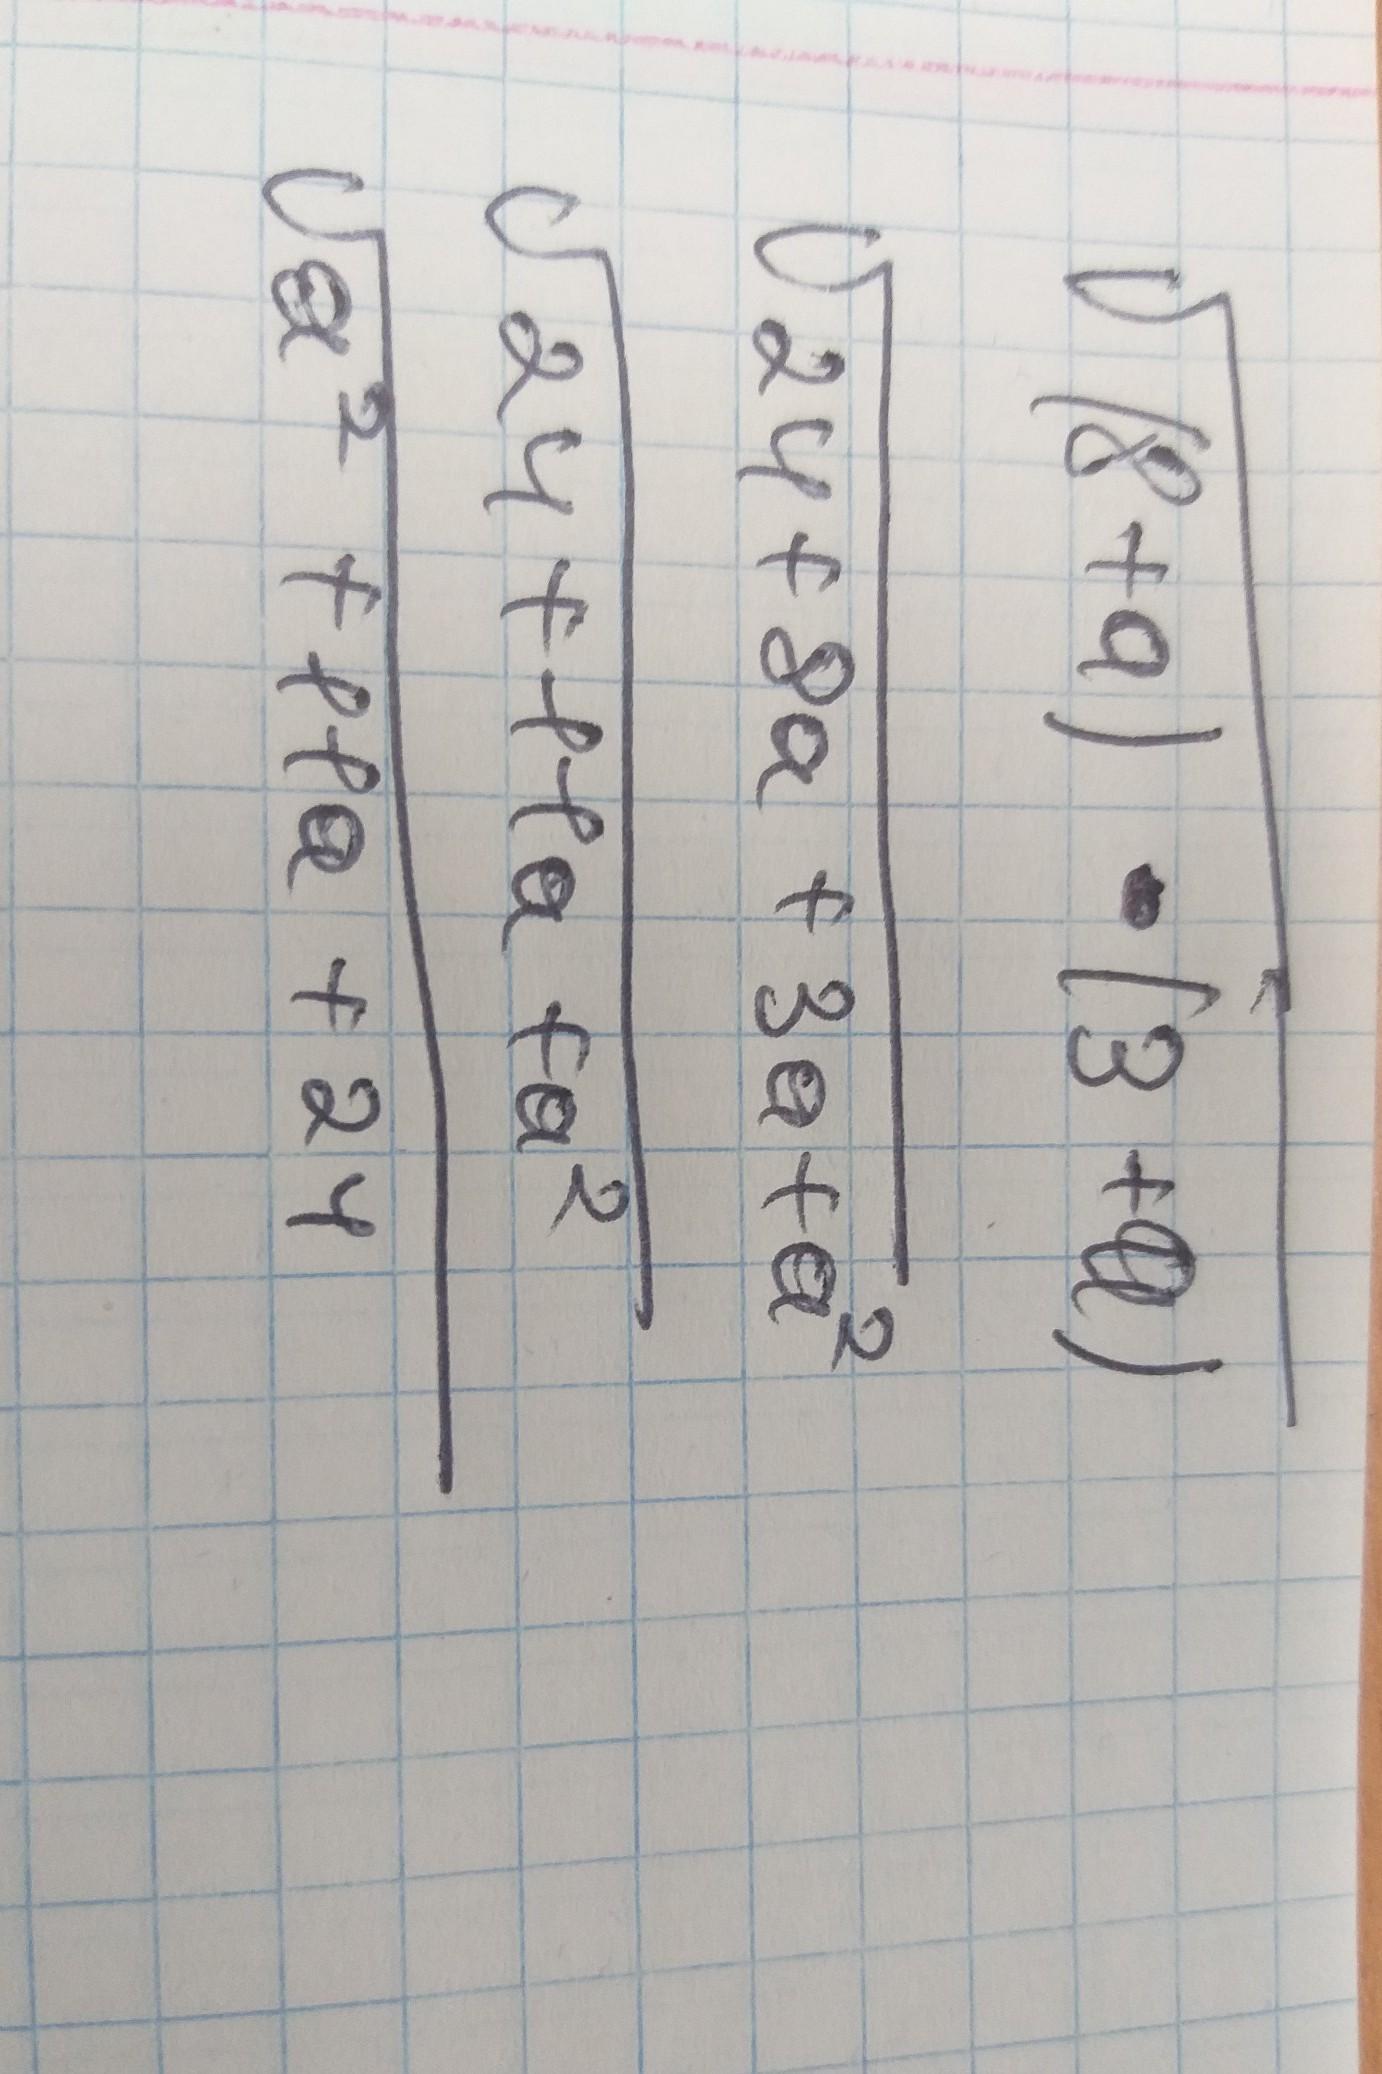 √(8+a) · (3+a)
√24+8a+3a+a²
√24+11a+a²
√a²+11a+24